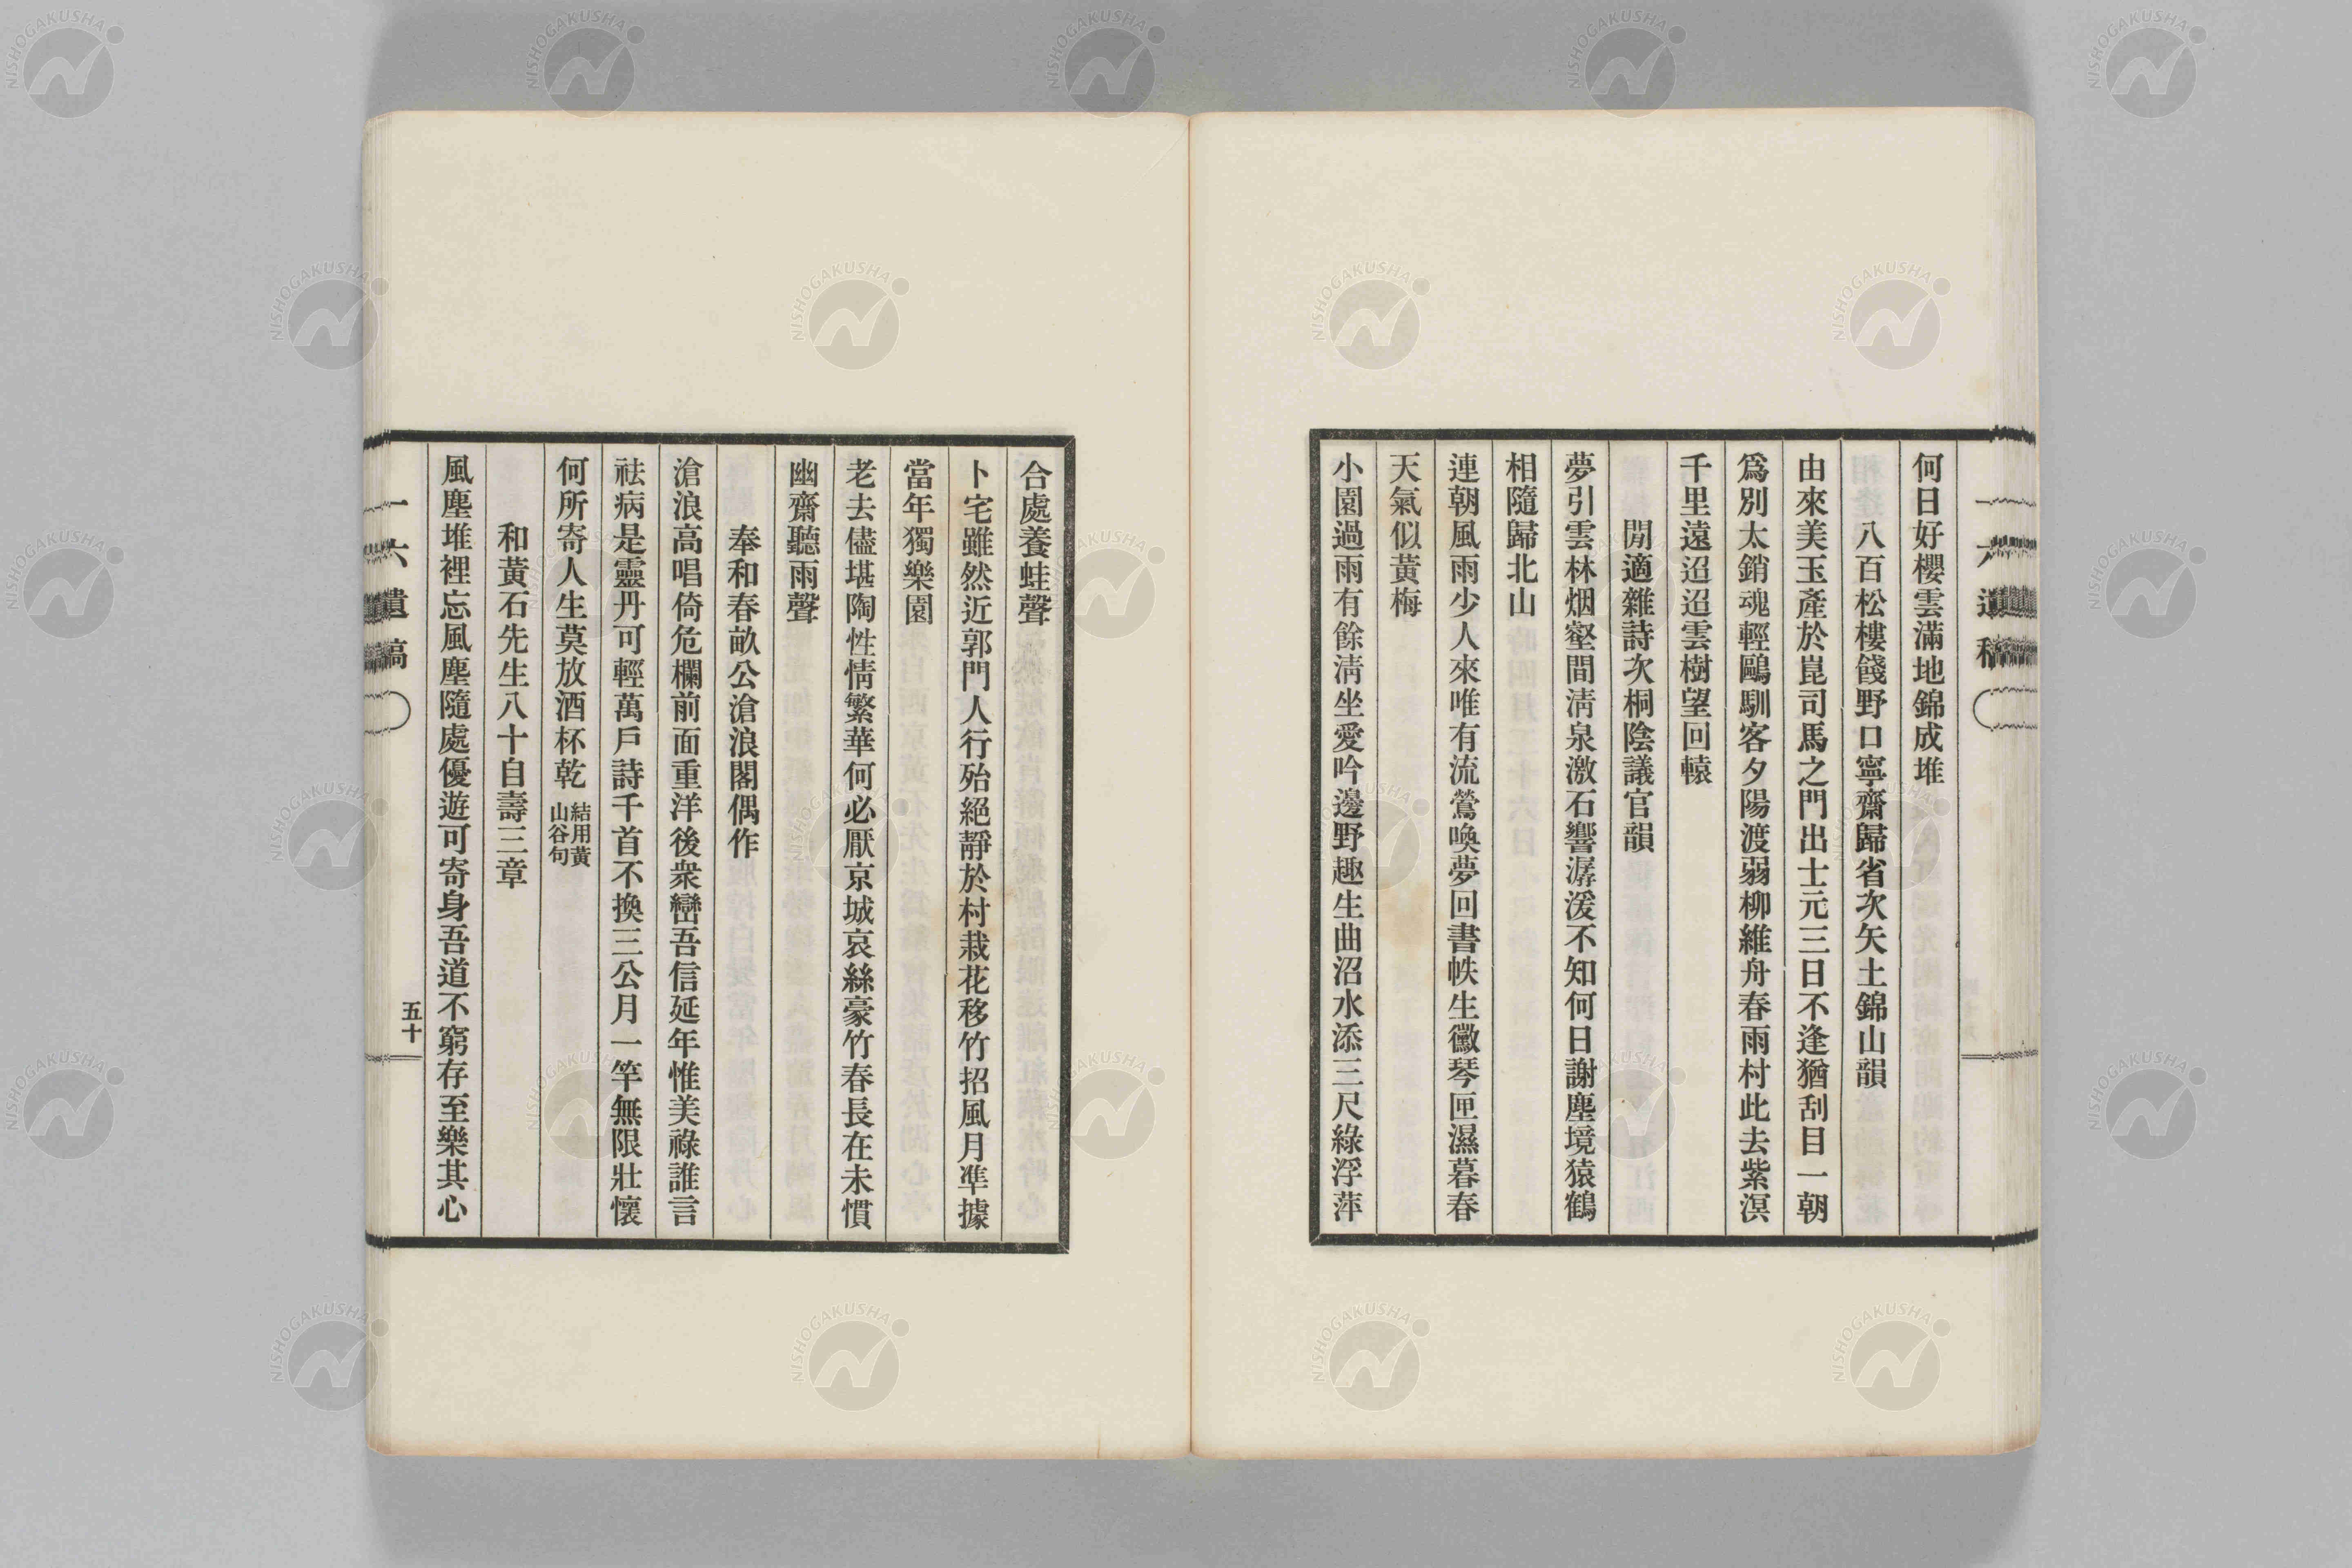 一六遺稿
何日好櫻雲滿地錦成堆
八百松樓餞野口寧齋歸省次矢土錦山韻
由來美玉產於崑司馬之門出士元三日不逢猶刮目一朝
爲別太銷魂輕鷗馴客夕陽渡弱柳維舟春雨村此去紫溟
千里遠迢迢雲樹望回轅
閒適雜詩次桐陰議官韻
夢引雲林烟壑間淸泉激石響潺湲不知何日謝塵境猿鶴
相隨歸北山
連朝風雨少人來唯有流鶯喚夢回書帙生黴琴匣濕暮春
天氣似黃梅
小園過雨有餘淸坐愛吟邊野趣生曲沼水添三尺綠浮萍
合處養蛙聲
卜宅雖然近郭門人行殆絕靜於村栽花移竹招風月準據
當年獨樂園
老去儘堪陶性情繁華何必厭京城哀絲豪竹春長在未慣
幽齋聽雨聲
奉和春畝公滄浪閣偶作
滄浪高唱倚危欄前面重洋後衆巒吾信延年惟美祿誰言
祛病是靈丹可輕萬戶詩千首不換三公月一竿無限壯懷
何所寄人生莫放酒杯乾 結用黃山谷句
和黃石先生八十自壽三章
風塵堆裡忘風塵隨處優遊可寄身吾道不窮存至樂其心
一六遺稿
五十
NISHOGAKUSHA